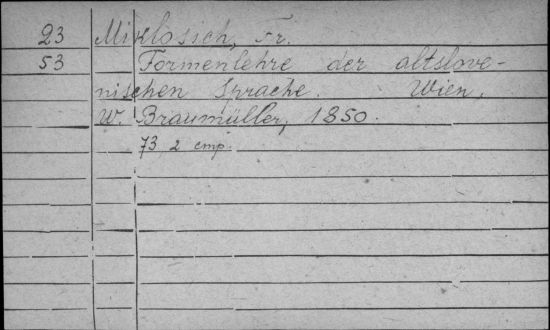 23 Miklosich, Fr.
53 Formenlehre der altslove-
nischen Sprache. Wien,
W. Braumüller, 1850.
73 2 стр.